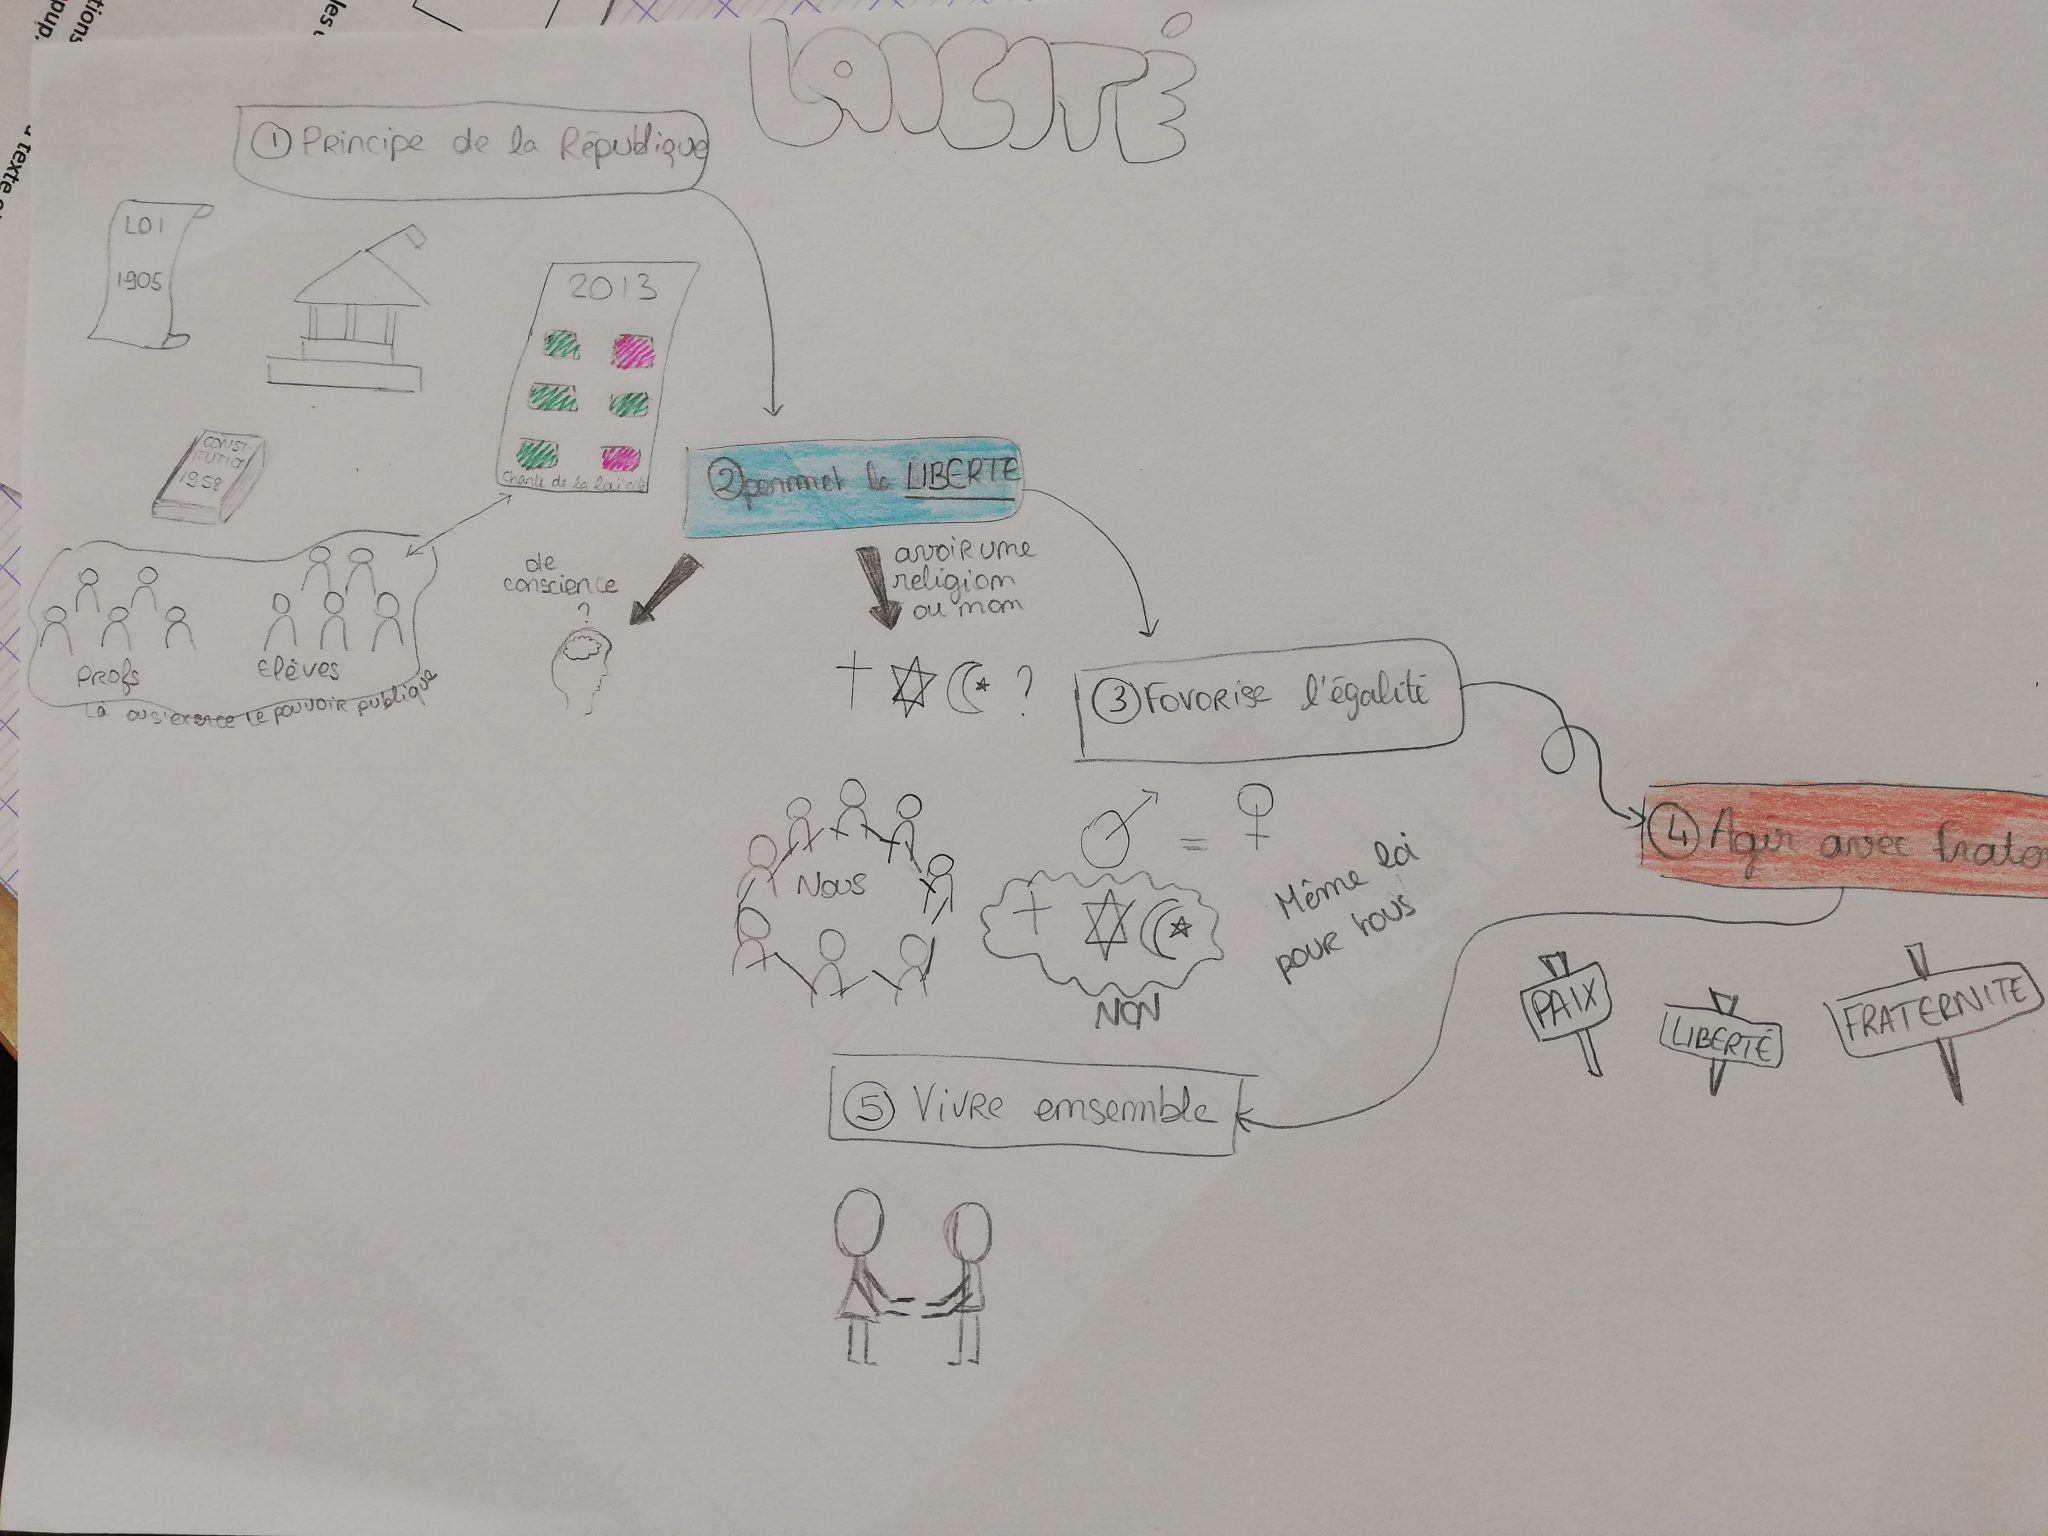 LAICITÉ
① Principe de la République
LOI
1905
2013
Charte de la laïcité
CONST
ITUTIO
1958
② permet la LIBERTE
de
conscience
?
avoir une
religion
ou non
?
Profs
Elèves
Là ou s'exerce le pouvoir publique
③ Favorise l'égalité
=
Nous
NON
Même loi
pour tous
④ Agir avec frater
PAIX
LIBERTÉ
FRATERNITE
⑤ Vivre ensemble
tions
pup.
les
texte